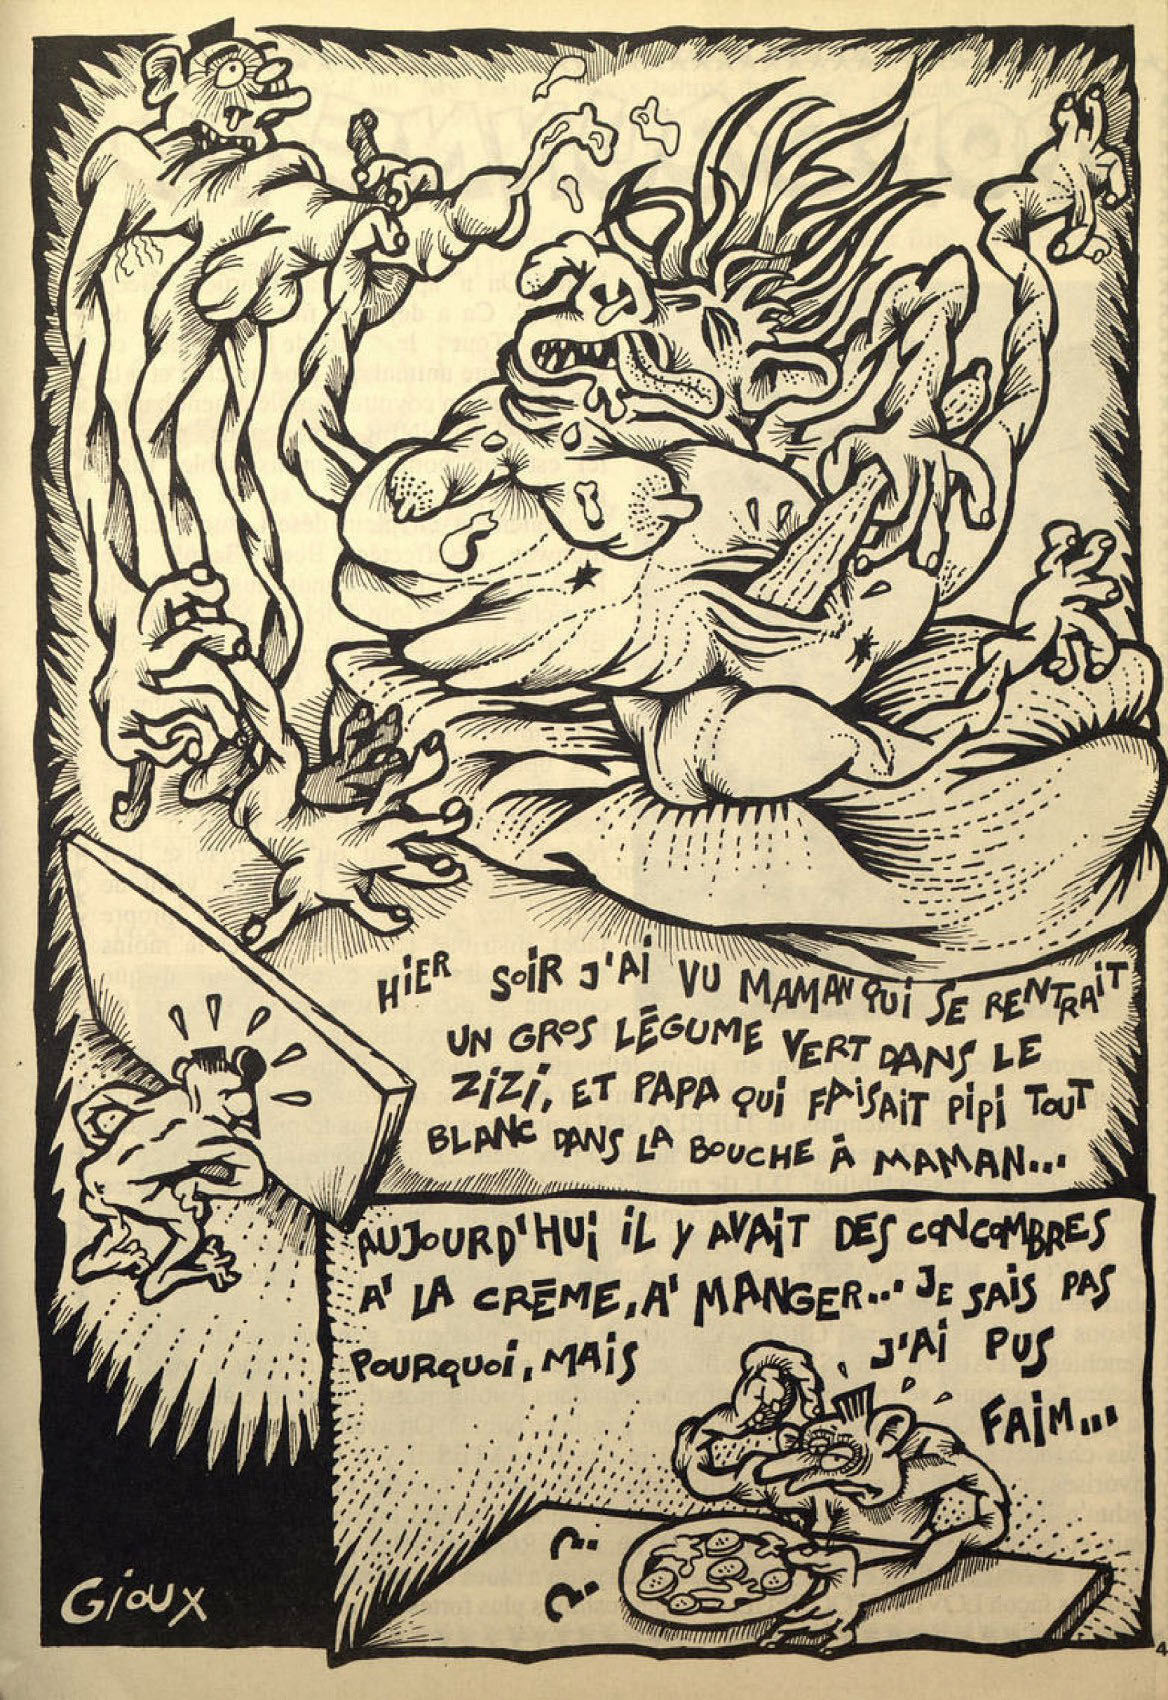 HiER SOiR J'Ai VU MAMAN QUi SE RENTRAiT
UN GROS LÉGUME VERT DANS LE
ZiZi, ET PAPA QUi FAiSAiT PiPi TOUT
BLANC DANS LA BOUCHE À MAMAN...
AUJOURD'HUi iL Y AVAiT DES CONCOMBRES
A' LA CRÊME, A' MANGER... JE SAiS PAS
POURQUOi, MAiS J'Ai PUS
FAiM...
GiOUX
4